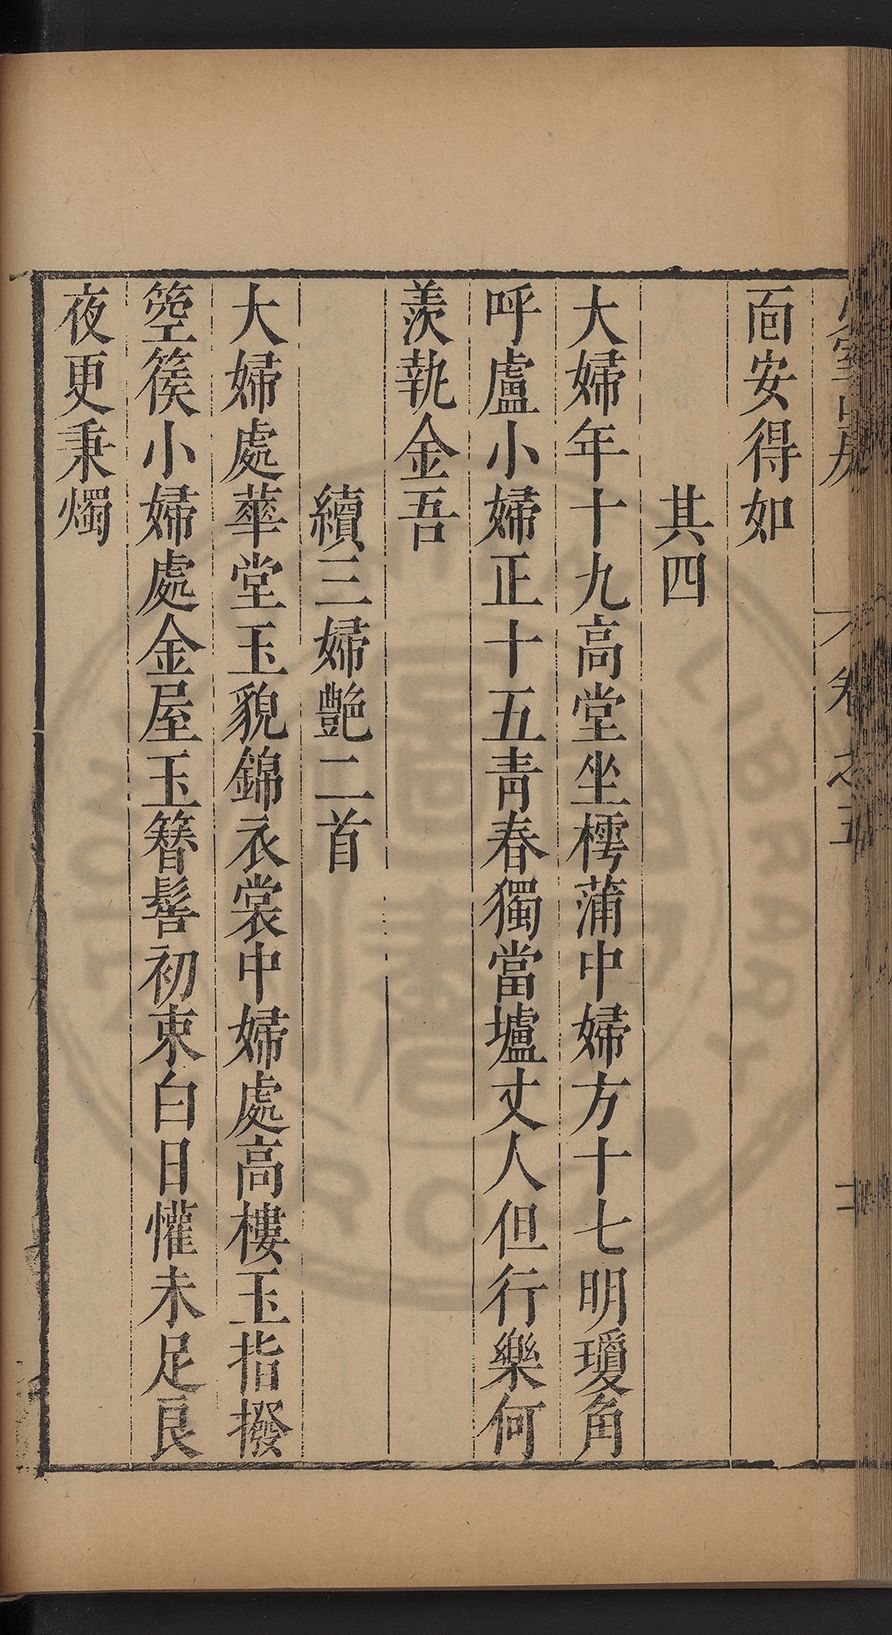 卷之五
面安得如
其四
大婦年十九高堂坐樗蒲中婦方十七明瓊角
呼盧小婦正十五青春獨當壚丈人但行樂何
羨執金吾
續三婦艷二首
大婦處華堂玉貌錦衣裳中婦處高樓玉指撥
箜篌小婦處金屋玉簪髻初束白日懽未足良
夜更秉燭